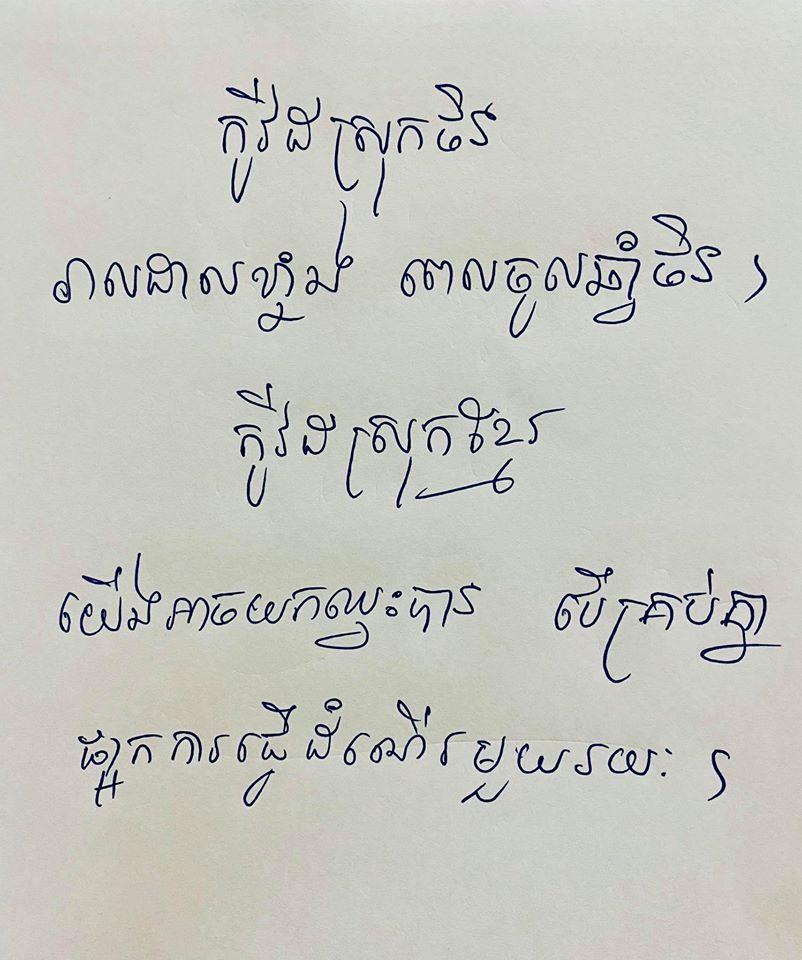 កូវីដស្រុកចិន
រាលដាលខ្លាំង ពេលចូលឆ្នាំចិន ។
កូវីដស្រុកខ្មែរ
យើងអាចយកឈ្នះបាន បើគ្រប់គ្នា
ផ្អាកការធ្វើដំណើរមួយរយៈ ។